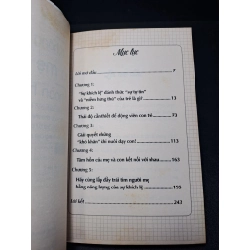 Mục lục
Lời mở đầu 7
Chương 1:
"Sự khích lệ" đánh thức "sự tự tin"
và "niềm hứng thú" của trẻ là gì? 13
Chương 2:
Thái độ cần thiết để động viên con trẻ 73
Chương 3:
Giải quyết chứng
"khó khăn" khi nuôi dạy con! 113
Chương 4:
Tâm hồn cha mẹ và con kết nối với nhau 163
Chương 5:
Hãy cùng lấp đầy trái tim người mẹ
bằng năng lượng của sự khích lệ
Lời kết 243